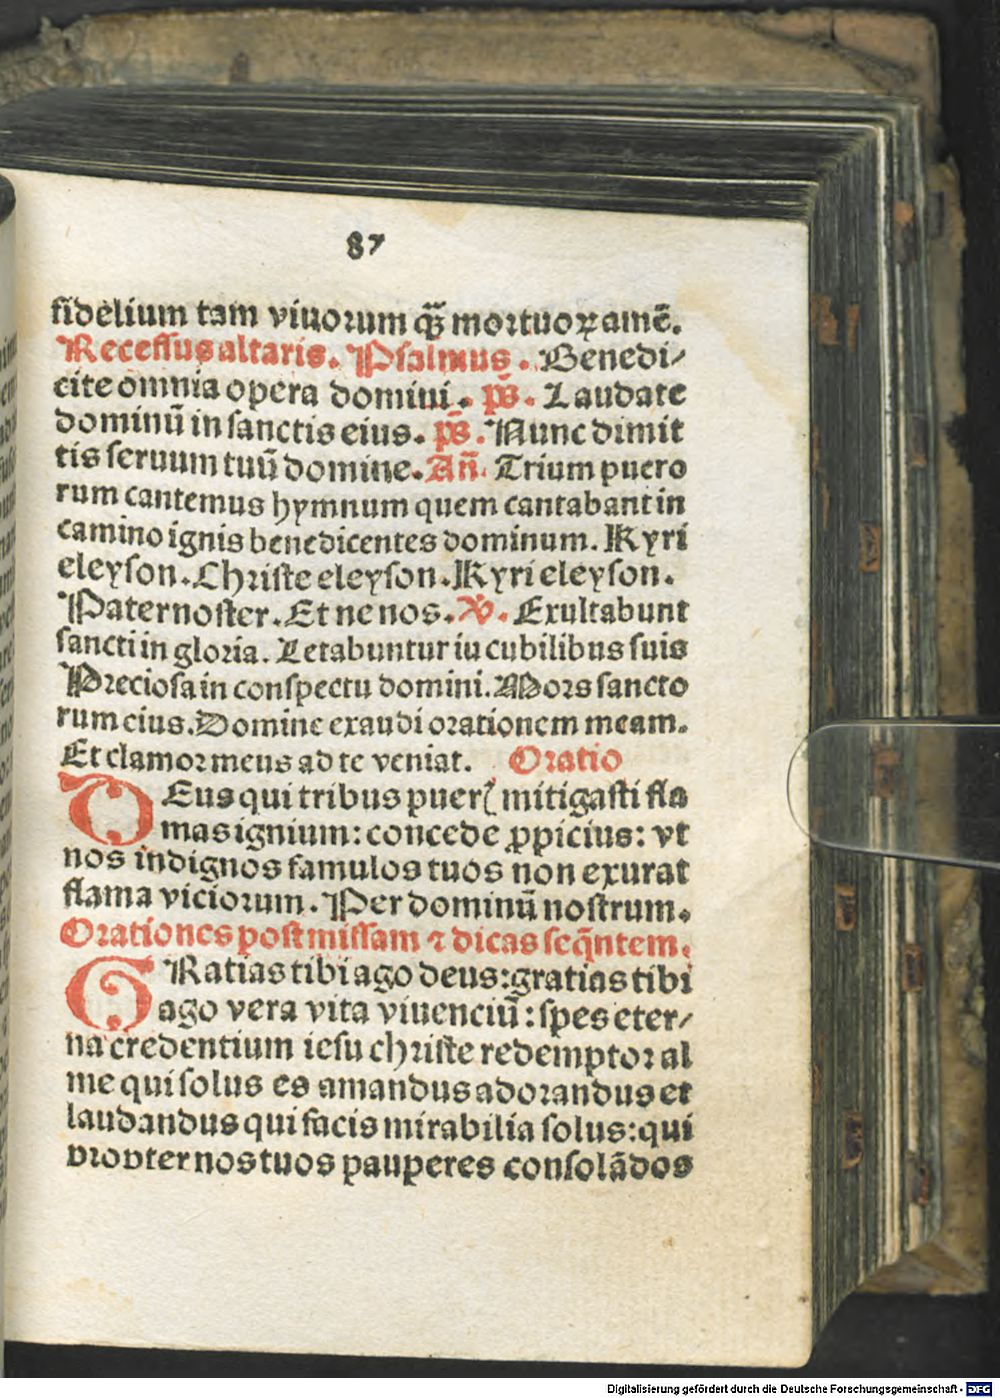 87
fidelium tam viuorum q̃ꝫ mortuoꝝ amē.
Recessus altaris. Psalmus. Benedi⸗
cite omnia opera domini. ps̄. Laudate
dominū in sanctis eius. ps̄. Nunc dimit
tis seruum tuū domine. Añ. Trium puero
rum cantemus hymnum quem cantabant in
camino ignis benedicentes dominum. Kyri
eleyson. Christe eleyson. Kyri eleyson.
Pater noster. Et ne nos. ℣. Exultabunt
sancti in gloria. Letabuntur iu cubilibus suis
Preciosa in conspectu domini. Mors sancto
rum eius. Domine exaudi orationem meam.
Et clamor meus ad te veniat. Oratio
DEus qui tribus puerꝭ mitigasti fla
mas ignium: concede ꝓpicius: vt
nos indignos famulos tuos non exurat
flama viciorum. Per dominū nostrum.
Orationes post missam ⁊ dicas seq̄ntem.
GRatias tibi ago deus: gratias tibi
ago vera vita viuenciū: spes eter⸗
na credentium iesu christe redemptor al
me qui solus es amandus adorandus et
laudandus qui facis mirabilia solus: qui
propter nos tuos pauperes consolādos
Digitalisierung gefördert durch die Deutsche Forschungsgemeinschaft - DFG